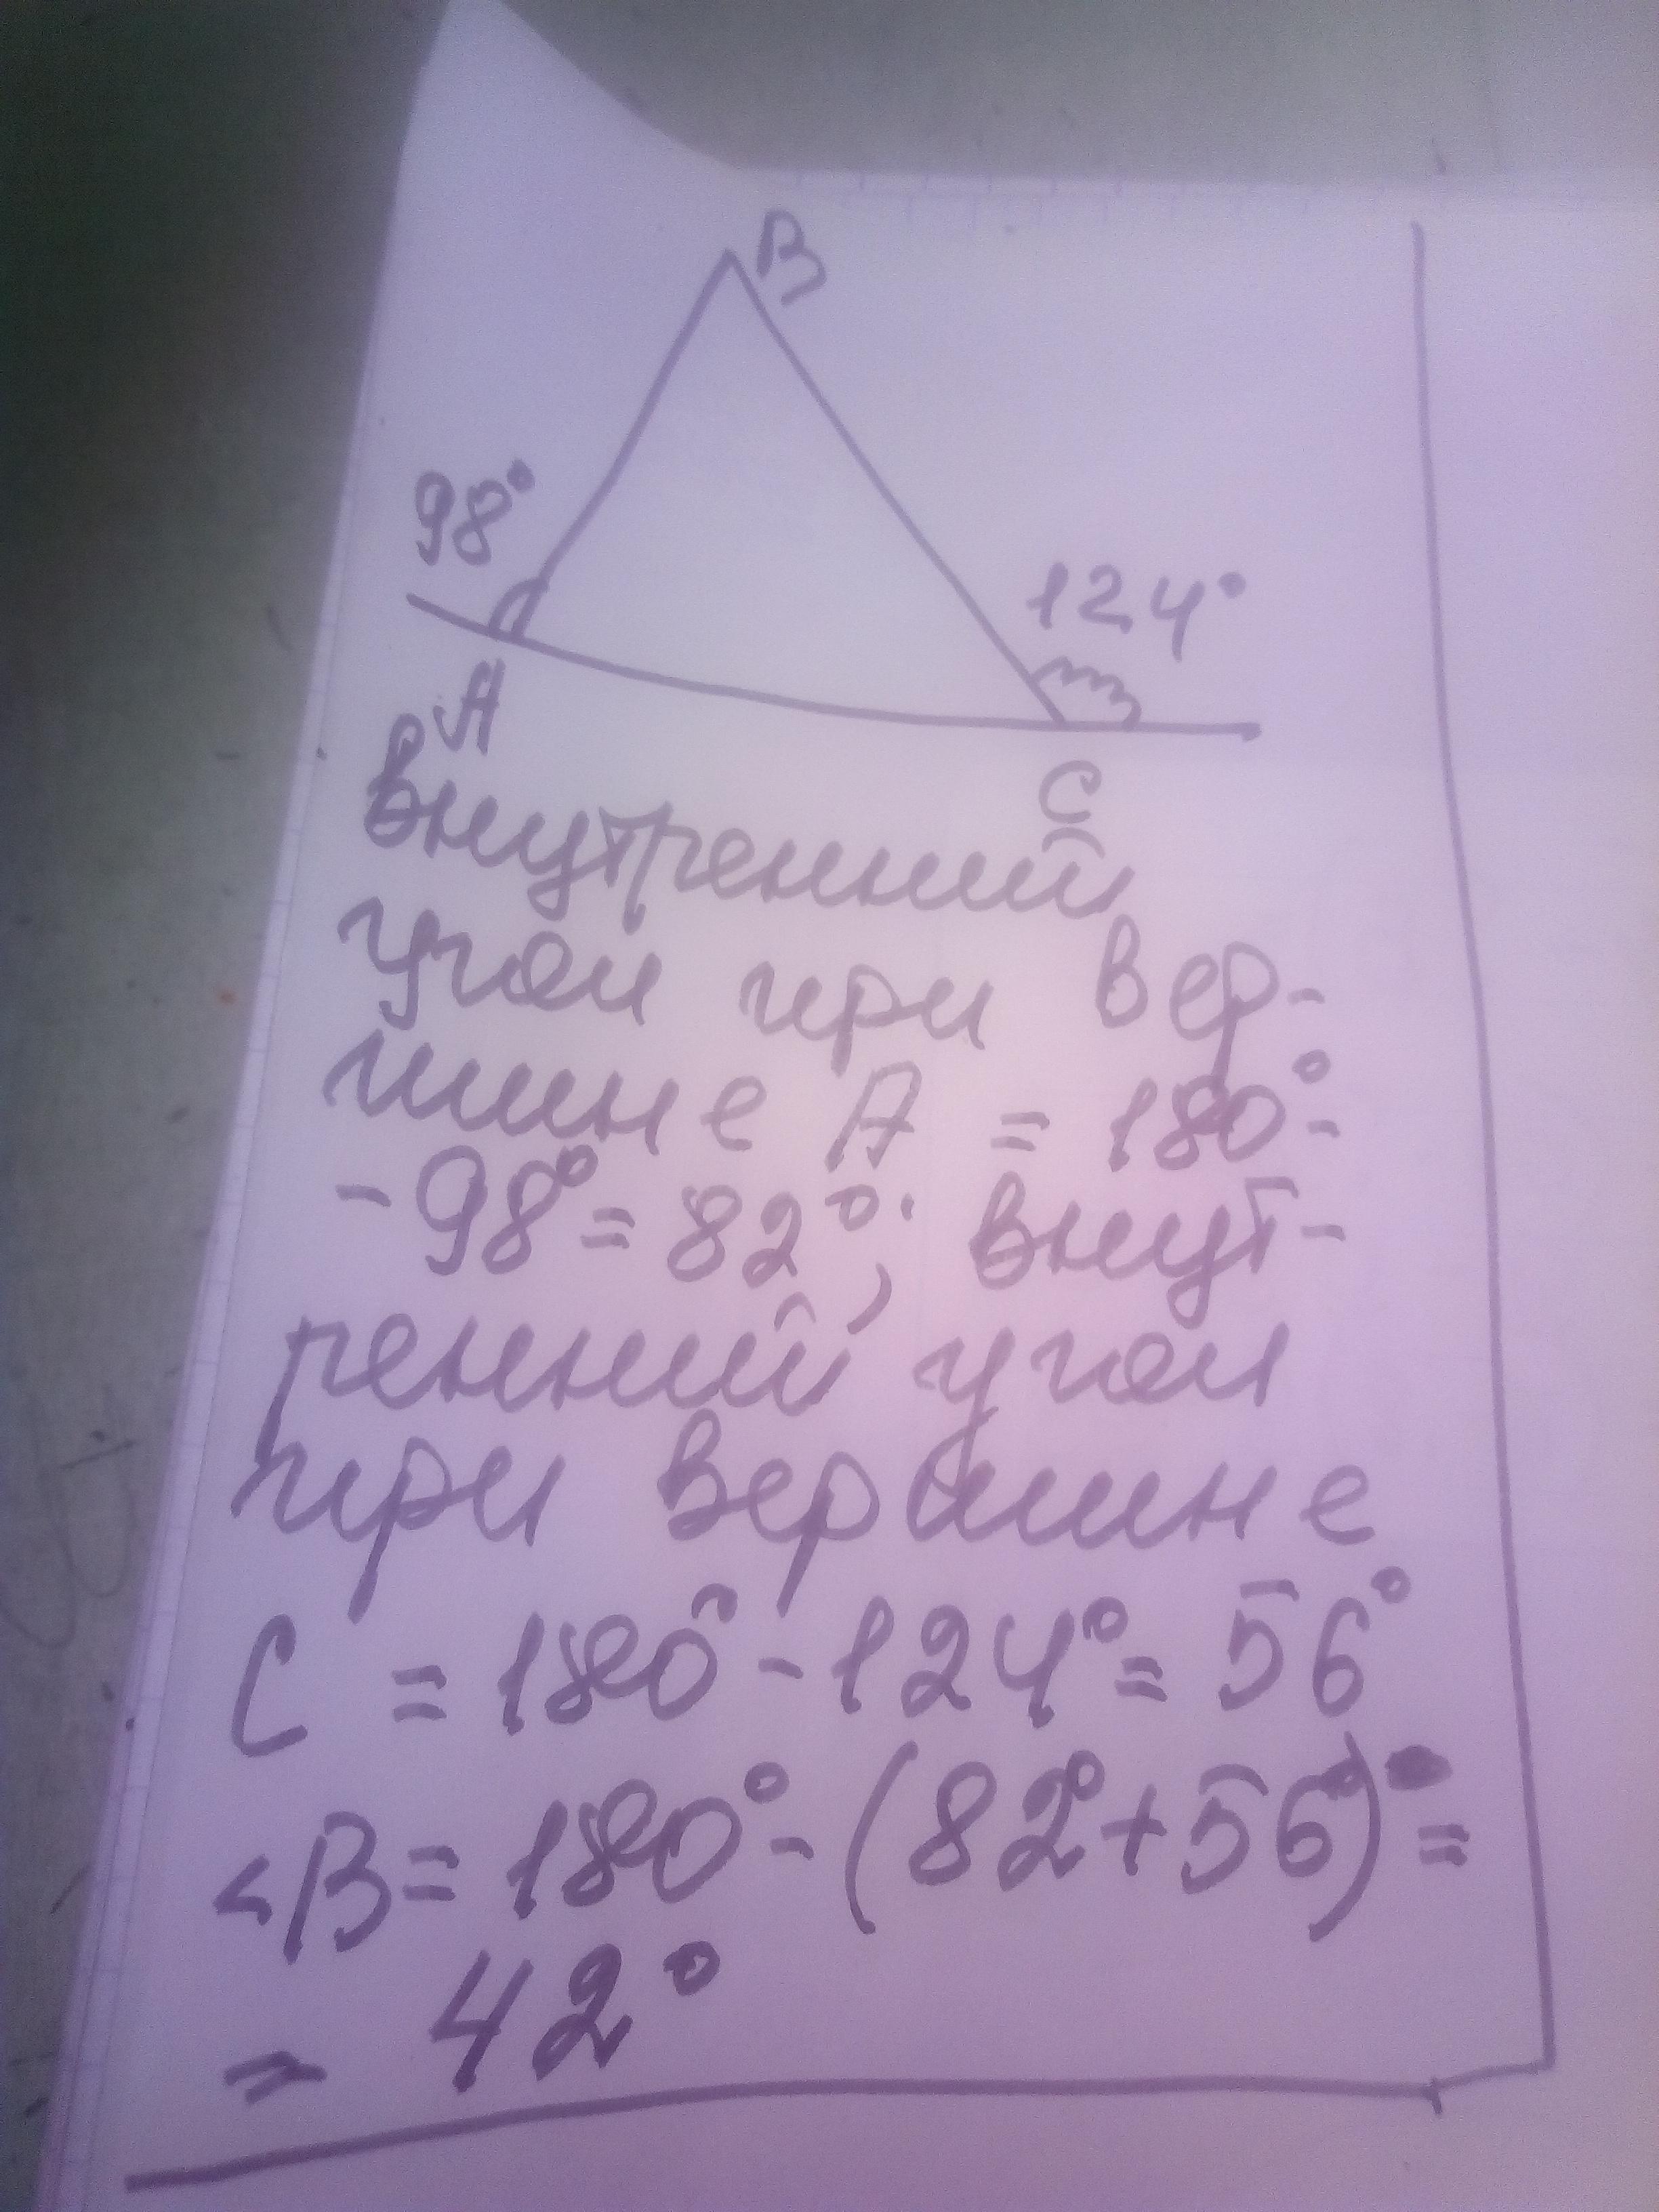 B
98°
124°
A
C
внутренний
угол при вер-
шине A = 180°-
-98° = 82°; внут-
ренний угол
при вершине
C = 180° - 124° = 56°
<B = 180° - (82° + 56°) =
= 42°